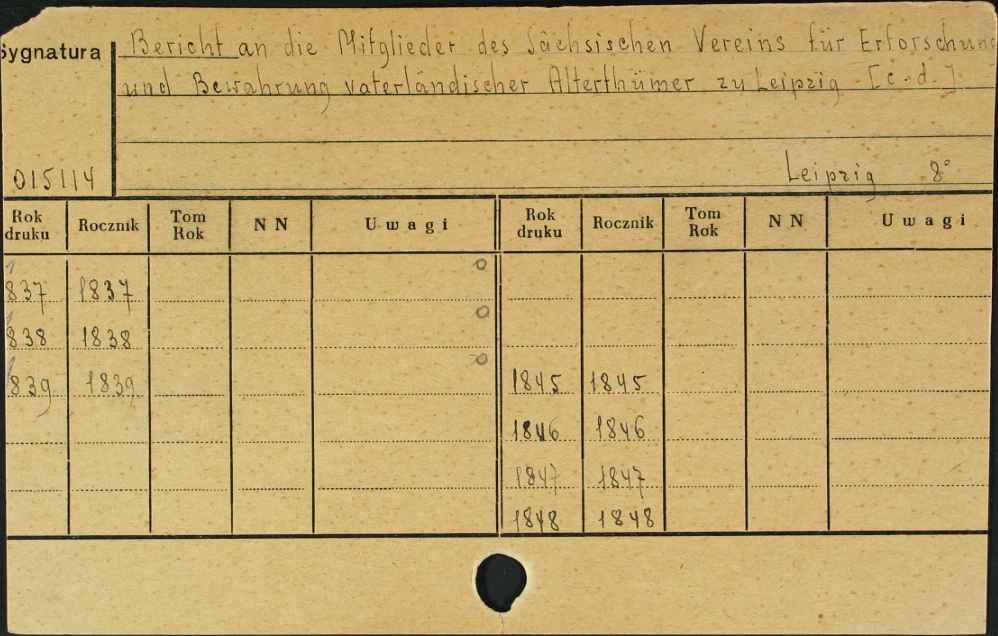 Sygnatura
Bericht an die Mitglieder des Sächsischen Vereins für Erforschung
und Bewahrung vaterländischer Alterthümer zu Leipzig [c.d.]
015114
Leipzig 8°
Rok druku Rocznik Tom Rok NN Uwagi Rok druku Rocznik Tom Rok NN Uwagi
1837 1837
1838 1838
1839 1839 1845 1845
1846 1846
1847 1847
1848 1848